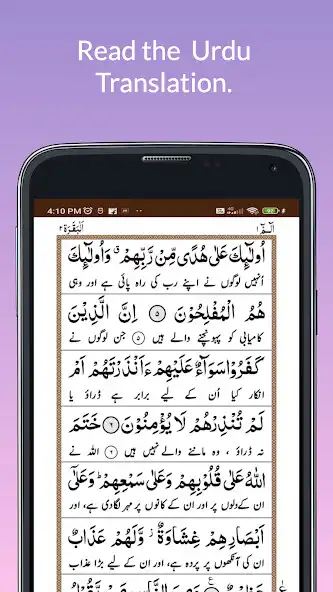 Read the Urdu
Translation.
4:10 PM
الٓمّٓ ١
اَلْبَقَرَة ٢
اُولٰٓئِكَ عَلٰى هُدًى مِّنْ رَّبِّهِمْ ۗ وَاُولٰٓئِكَ
اُنہیں لوگوں نے اپنے رب کی راہ پائی ہے اور وہی
هُمُ الْمُفْلِحُوْنَ ۝٥ اِنَّ الَّذِيْنَ
کامیابی کو پہونچنے والے ہیں ۝٥ جن لوگوں نے
كَفَرُوْا سَوَآءٌ عَلَيْهِمْ ءَاَنْذَرْتَهُمْ اَمْ
انکار کیا اُن کے لیے برابر ہے ڈراؤ یا
لَمْ تُنْذِرْهُمْ لَا يُؤْمِنُوْنَ ۝٦ خَتَمَ
نہ ڈراؤ ، وہ ماننے والے نہیں ہیں ۝٦ اللہ نے
اللّٰهُ عَلٰى قُلُوْبِهِمْ وَعَلٰى سَمْعِهِمْ ؕ وَعَلٰٓى
ان کے دلوں پر اور ان کے کانوں پر مہر لگادی ہے، اور
اَبْصَارِهِمْ غِشَاوَةٌ ؗ وَّلَهُمْ عَذَابٌ
ان کی آنکھوں پر پردہ ہے، اور ان کے لیے بڑا عذاب